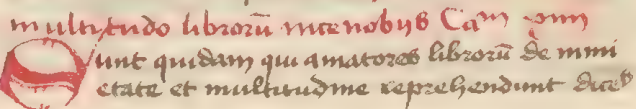 multitudo librorū
Sunt quidam qui amatores librorū de nimi
etate et multitudine reprehendunt dicēt